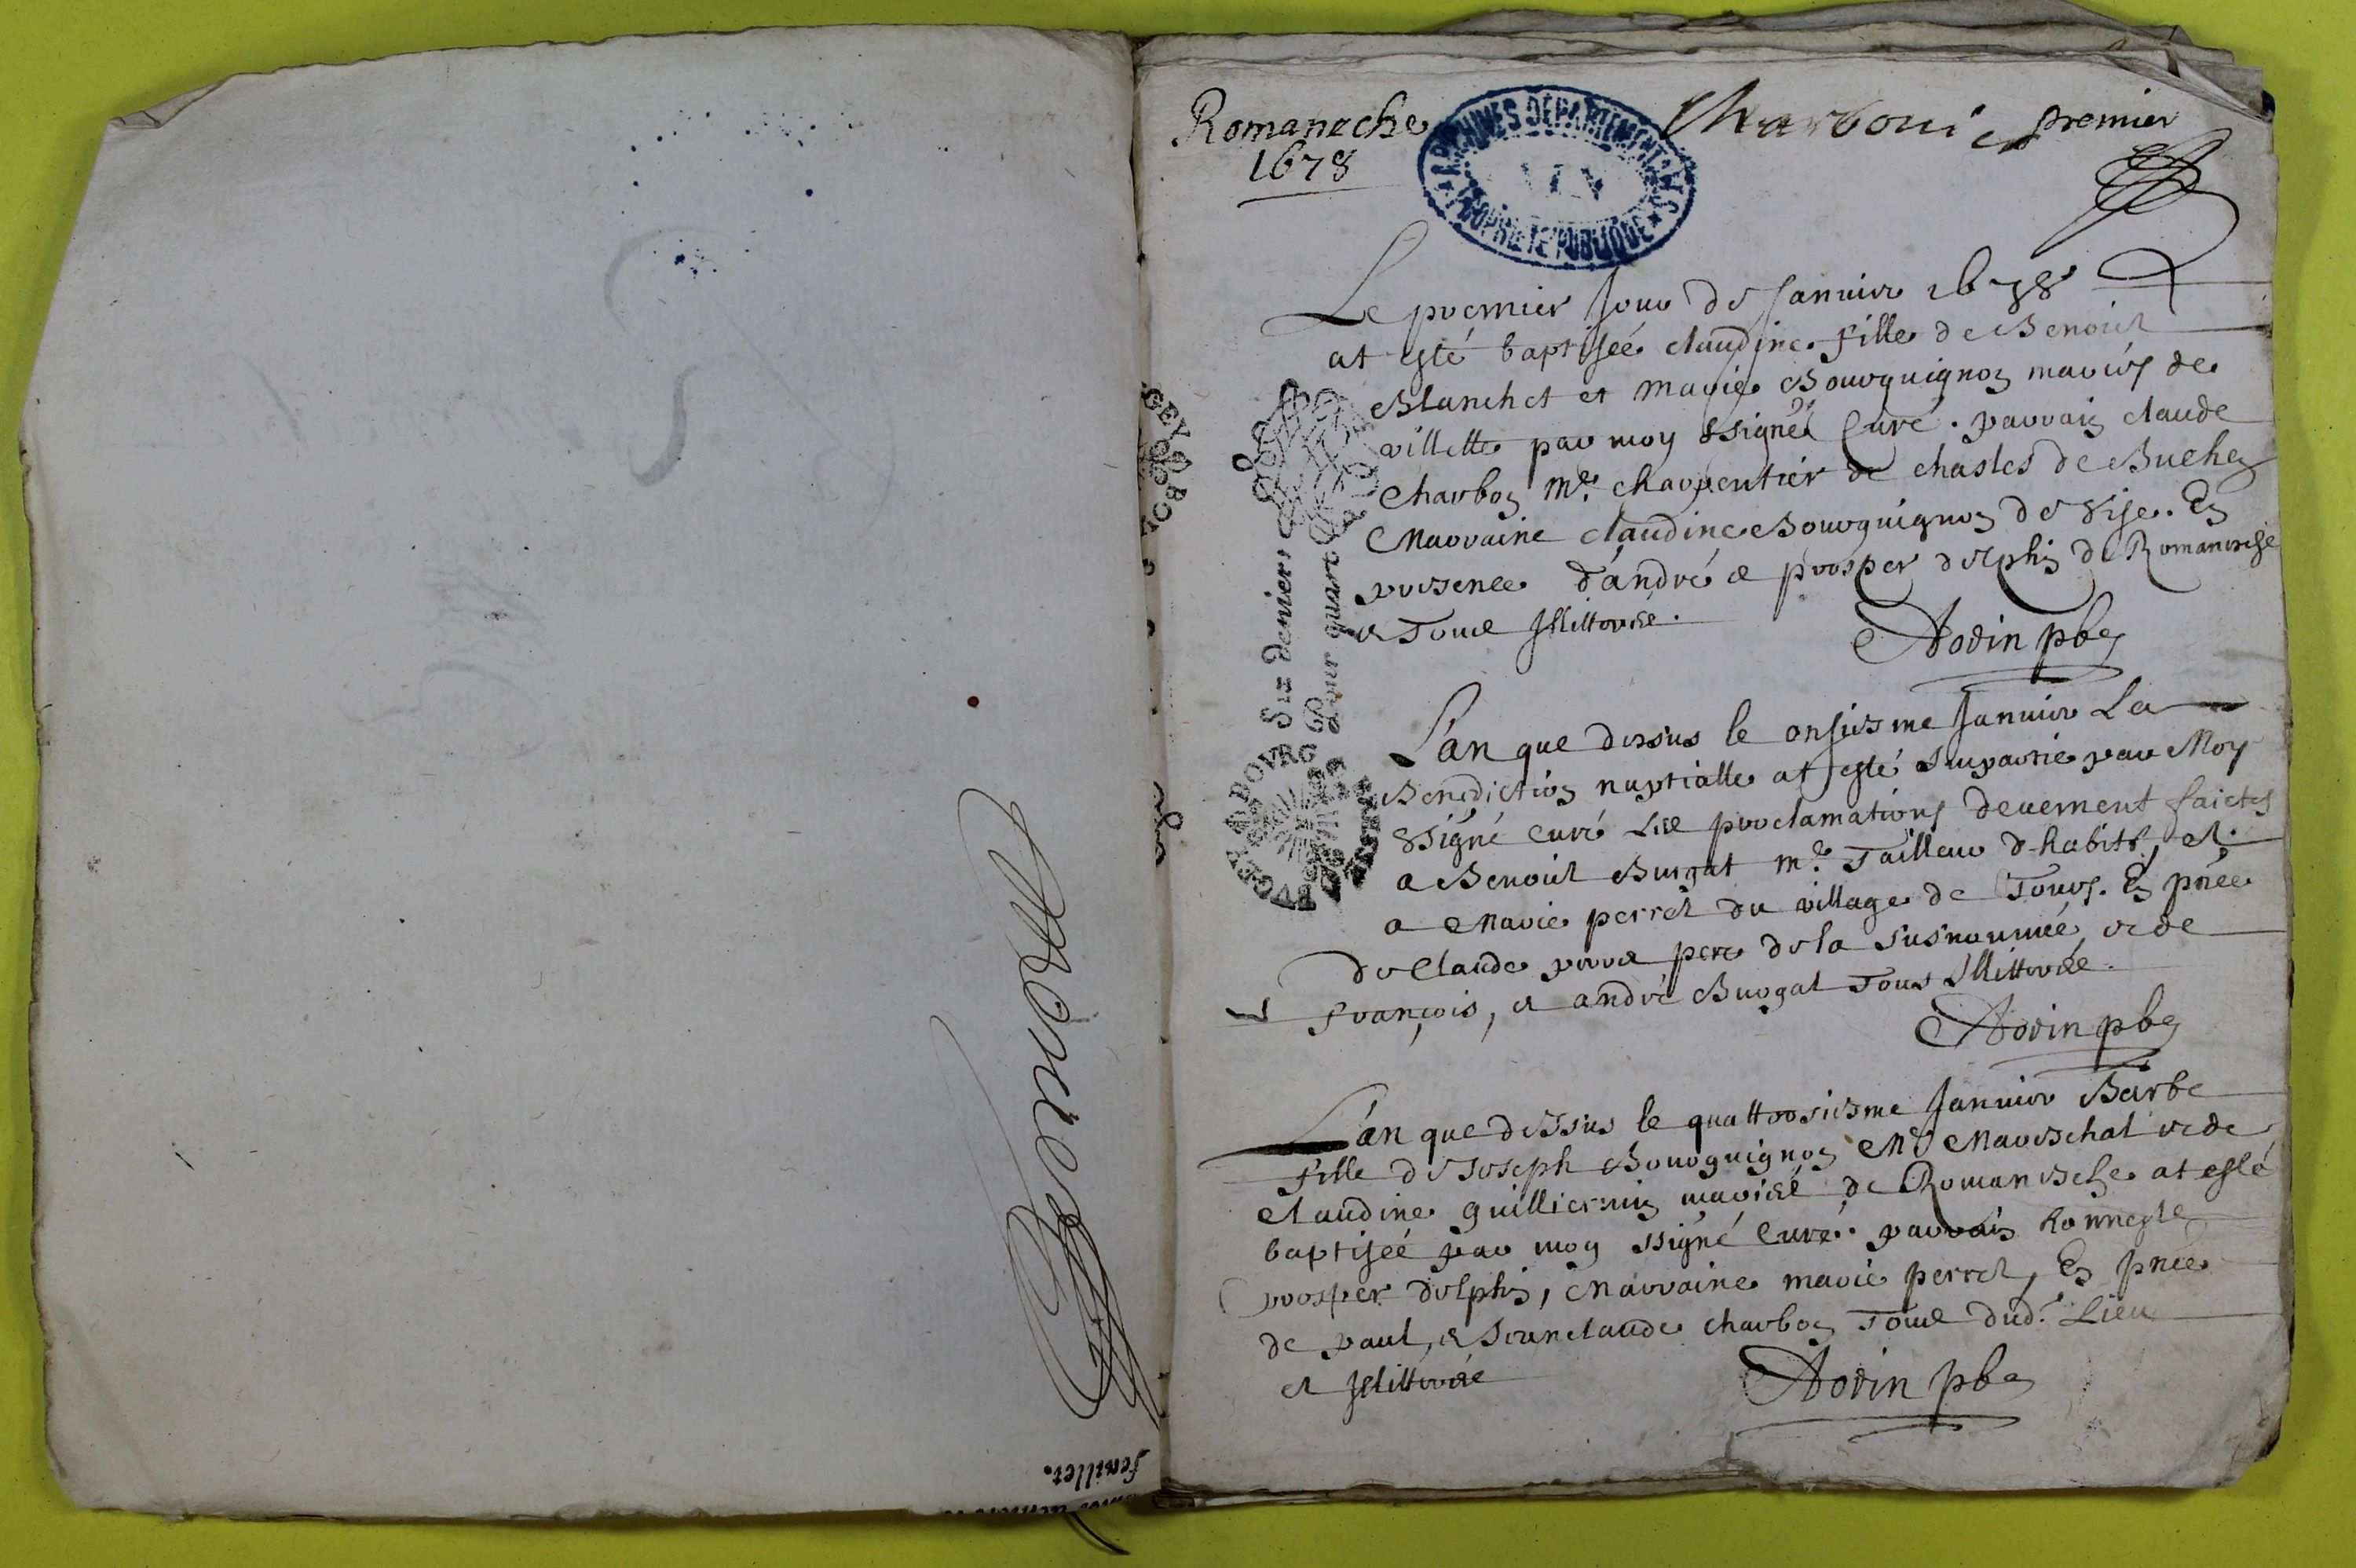 feuillet.
Romaneche
1678
Charbonie
premier
ARCHIVES DEPARTEMENTALES
PROPRIETE PUBLIQUE
AIN
Six deniers
Pour quart
BOVRG
BVGEY
Le premier Jour de Januier 1678
at esté baptiseé claudine fille de Benoict
Blanchet et Marie Bourguignon mariés de
villette par moy ssigné Curé. parrain claude
Charbon Me. charpentier de chasles de Buehe
Marraine claudine Bourguignon de . En
presence d'andré & prosper delphin de Romanesche
& Tous Jllitterés.
Aodin pbr
L'an que dessus le onsiesme Januier La
Benediction nuptialle at esté Impartie par Moy
ssigné Curé Les proclamations deuement faictes
a Benoict Burgat Me. Tailleur d'habits, et
a Marie perret du village de Tours. En pnce
de Claude perret pere de la susnommée, & de
françois, & andré Burgat Tous Jllitterés.
Aodin pbr
L'an que dessus le quattorsiesme Januier Barbe
fille de Joseph Bourguignon Me Mareschal & de
Claudine guilliermin mariés de Romanesche at esté
baptiseé par moy ssigné Curé. parrain honneste
prosper delphin, Marraine marie perret, En pnce
de paul, & Jeanclaude charbon Tous dud. Lieu
et Jllitterés
Aodin pbr